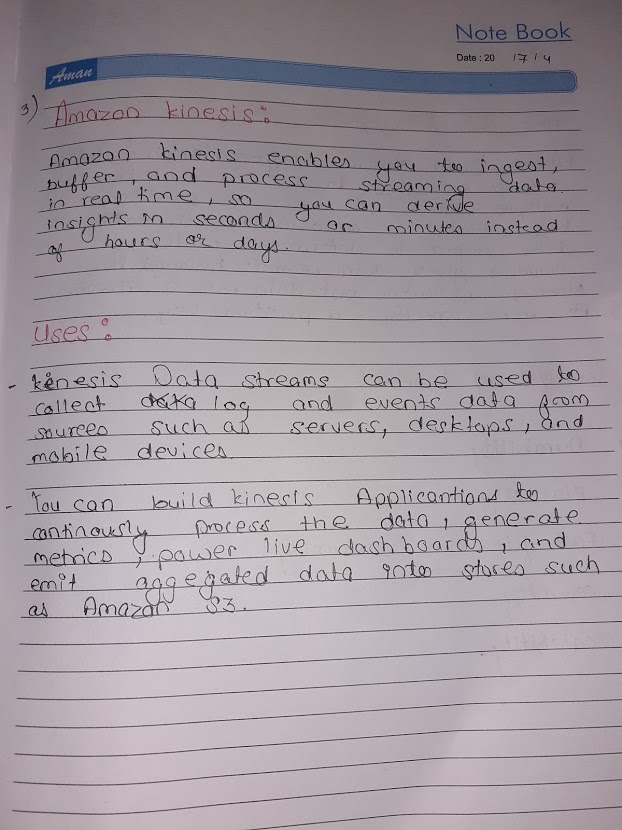 Note Book
Date : 20 17 / 4
Aman
3) Amazon kinesis :
Amazon kinesis enables you to ingest,
buffer, and process streaming data
in real time, so you can derive
insights in seconds or minutes instead
of hours or days.
Uses :
- kinesis Data streams can be used to
collect data log and events data from
sources such as servers, desktops, and
mobile devices
- You can build kinesis Applicantions to
continously process the data, generate
metrics, power live dashboards, and
emit aggegated data into stores such
as Amazon S3.